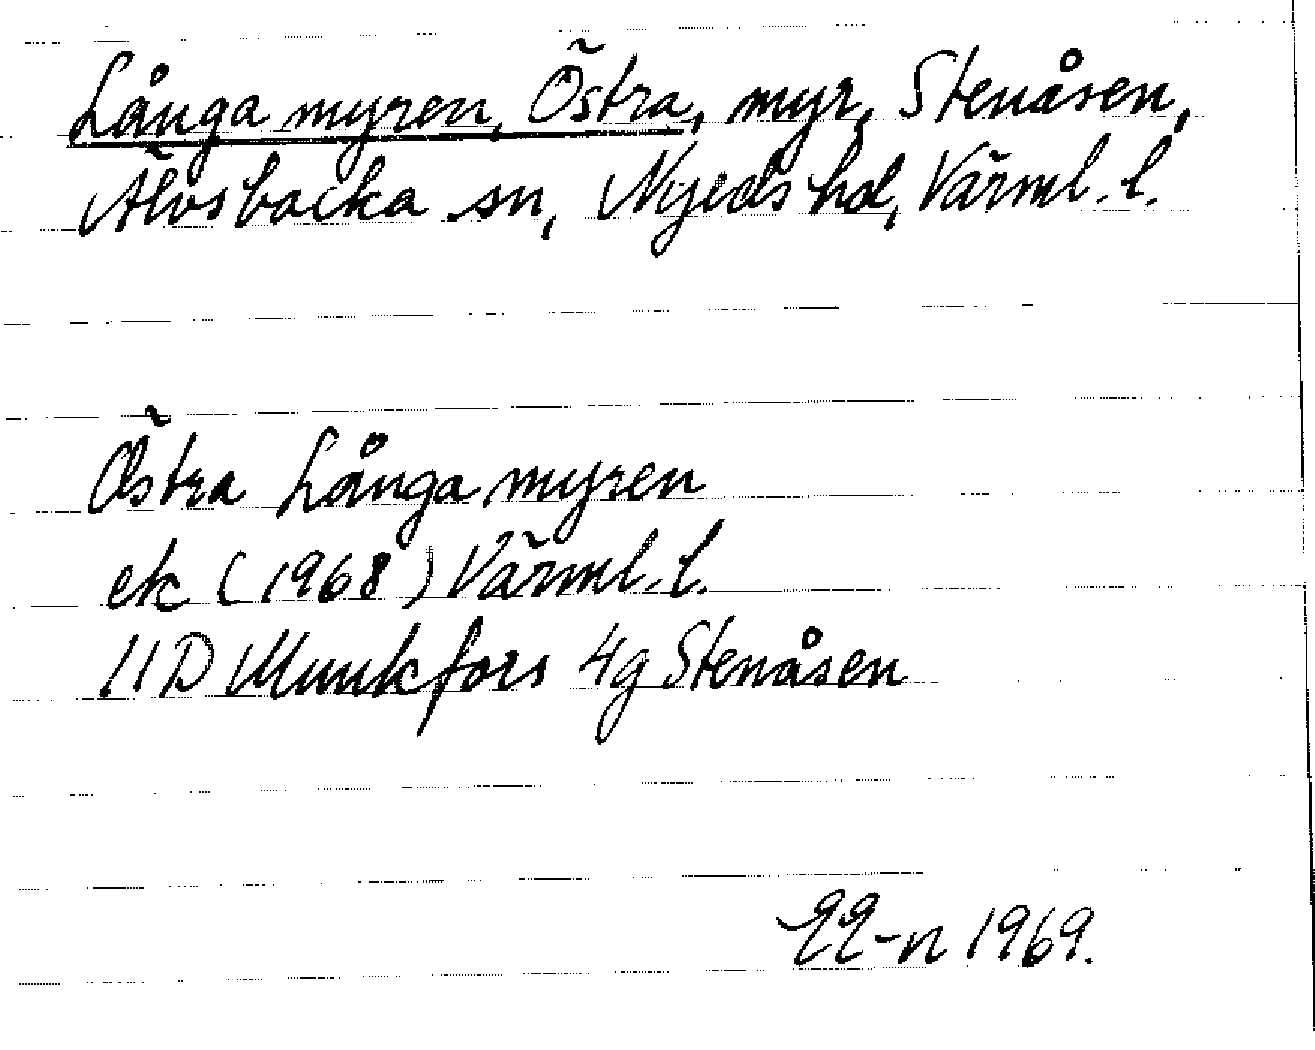 Långa myren, Östra, myr, Stenåsen,
Älvsbacka sn, Nyeds hd, Värml. l.
Östra Långa myren
ek (1968) Värml. l.
11D Munkfors 4g Stenåsen
1969.